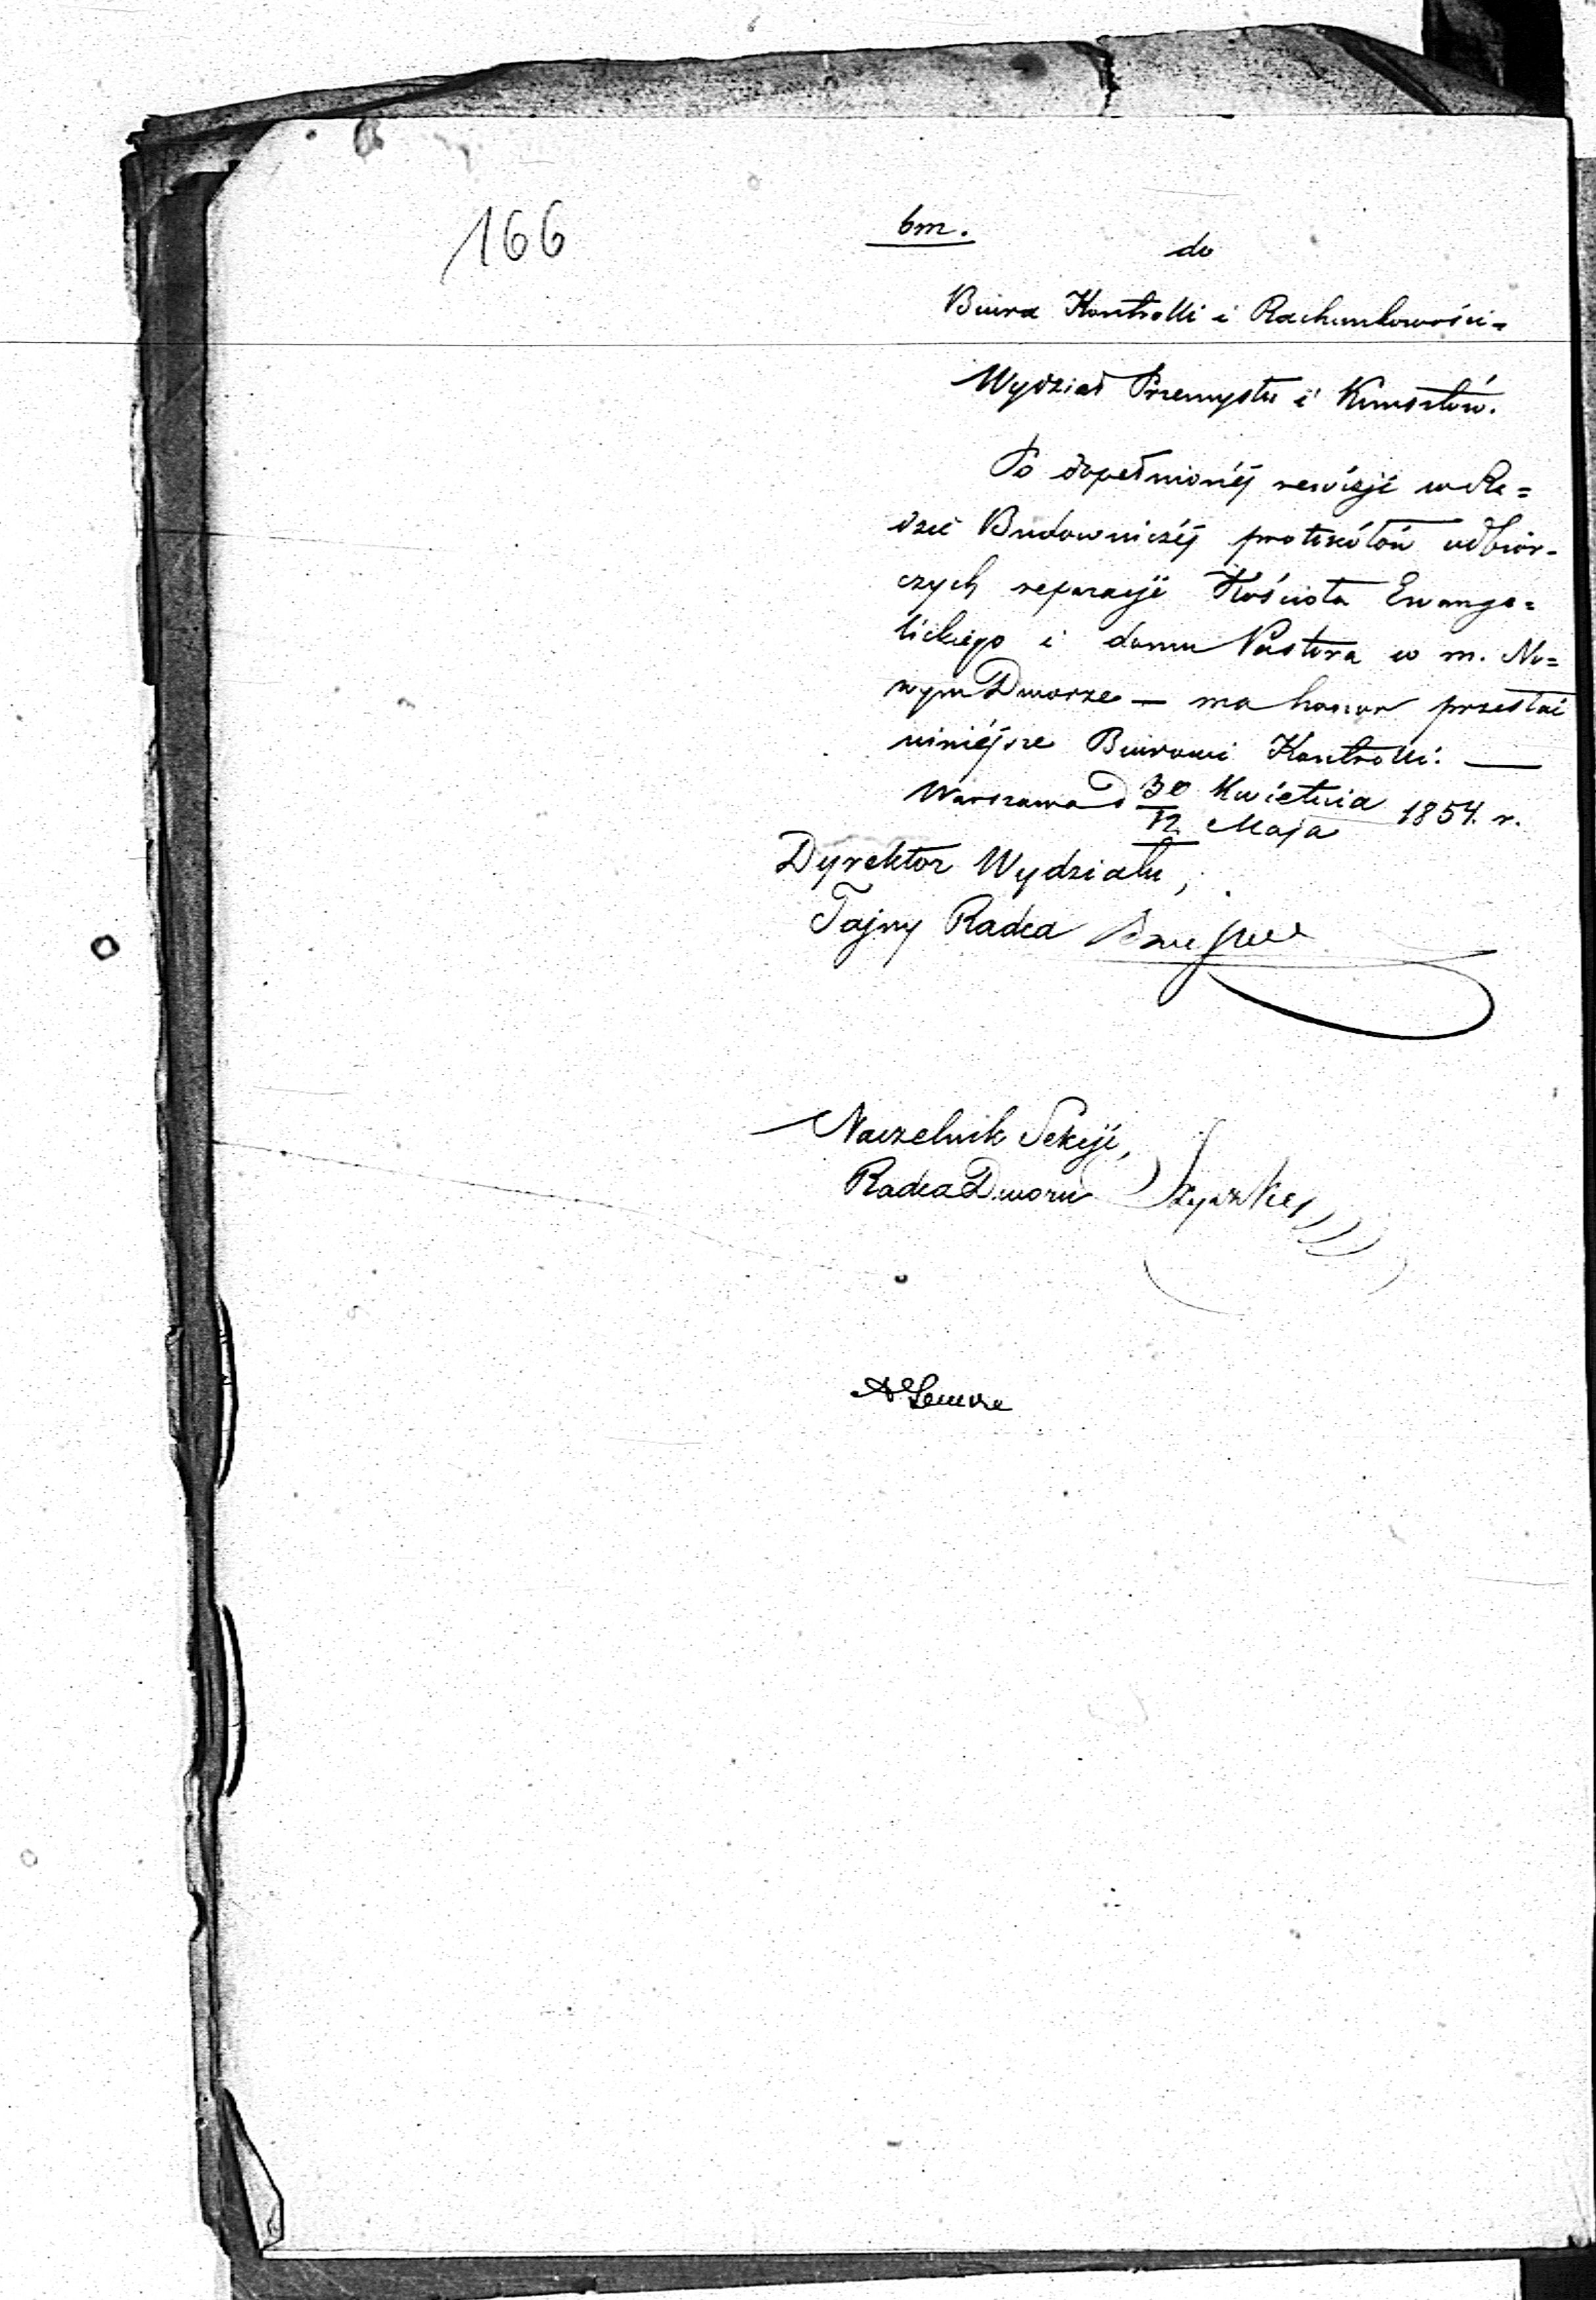 166
bm.
do
Biura Kontrolli i Rachunkowości=
Wydział Przemysłu i Kunsztów.
Po dopełnionéj rewizji w Ra=
dzie Budowniczéj protokółów odbior-
czych reparacji Kościoła Ewange=
lickiego i domu Pastora w m. No=
wym Dworze — ma honor przesłać
niniéjsze Biurowi Kontrolli. —
Warszawa d 30 Kwietnia / 12 Maja 1854. r.
Dyrektor Wydziału,
Tajny Radca
Naczelnik Sekcji,
Radca Dworu